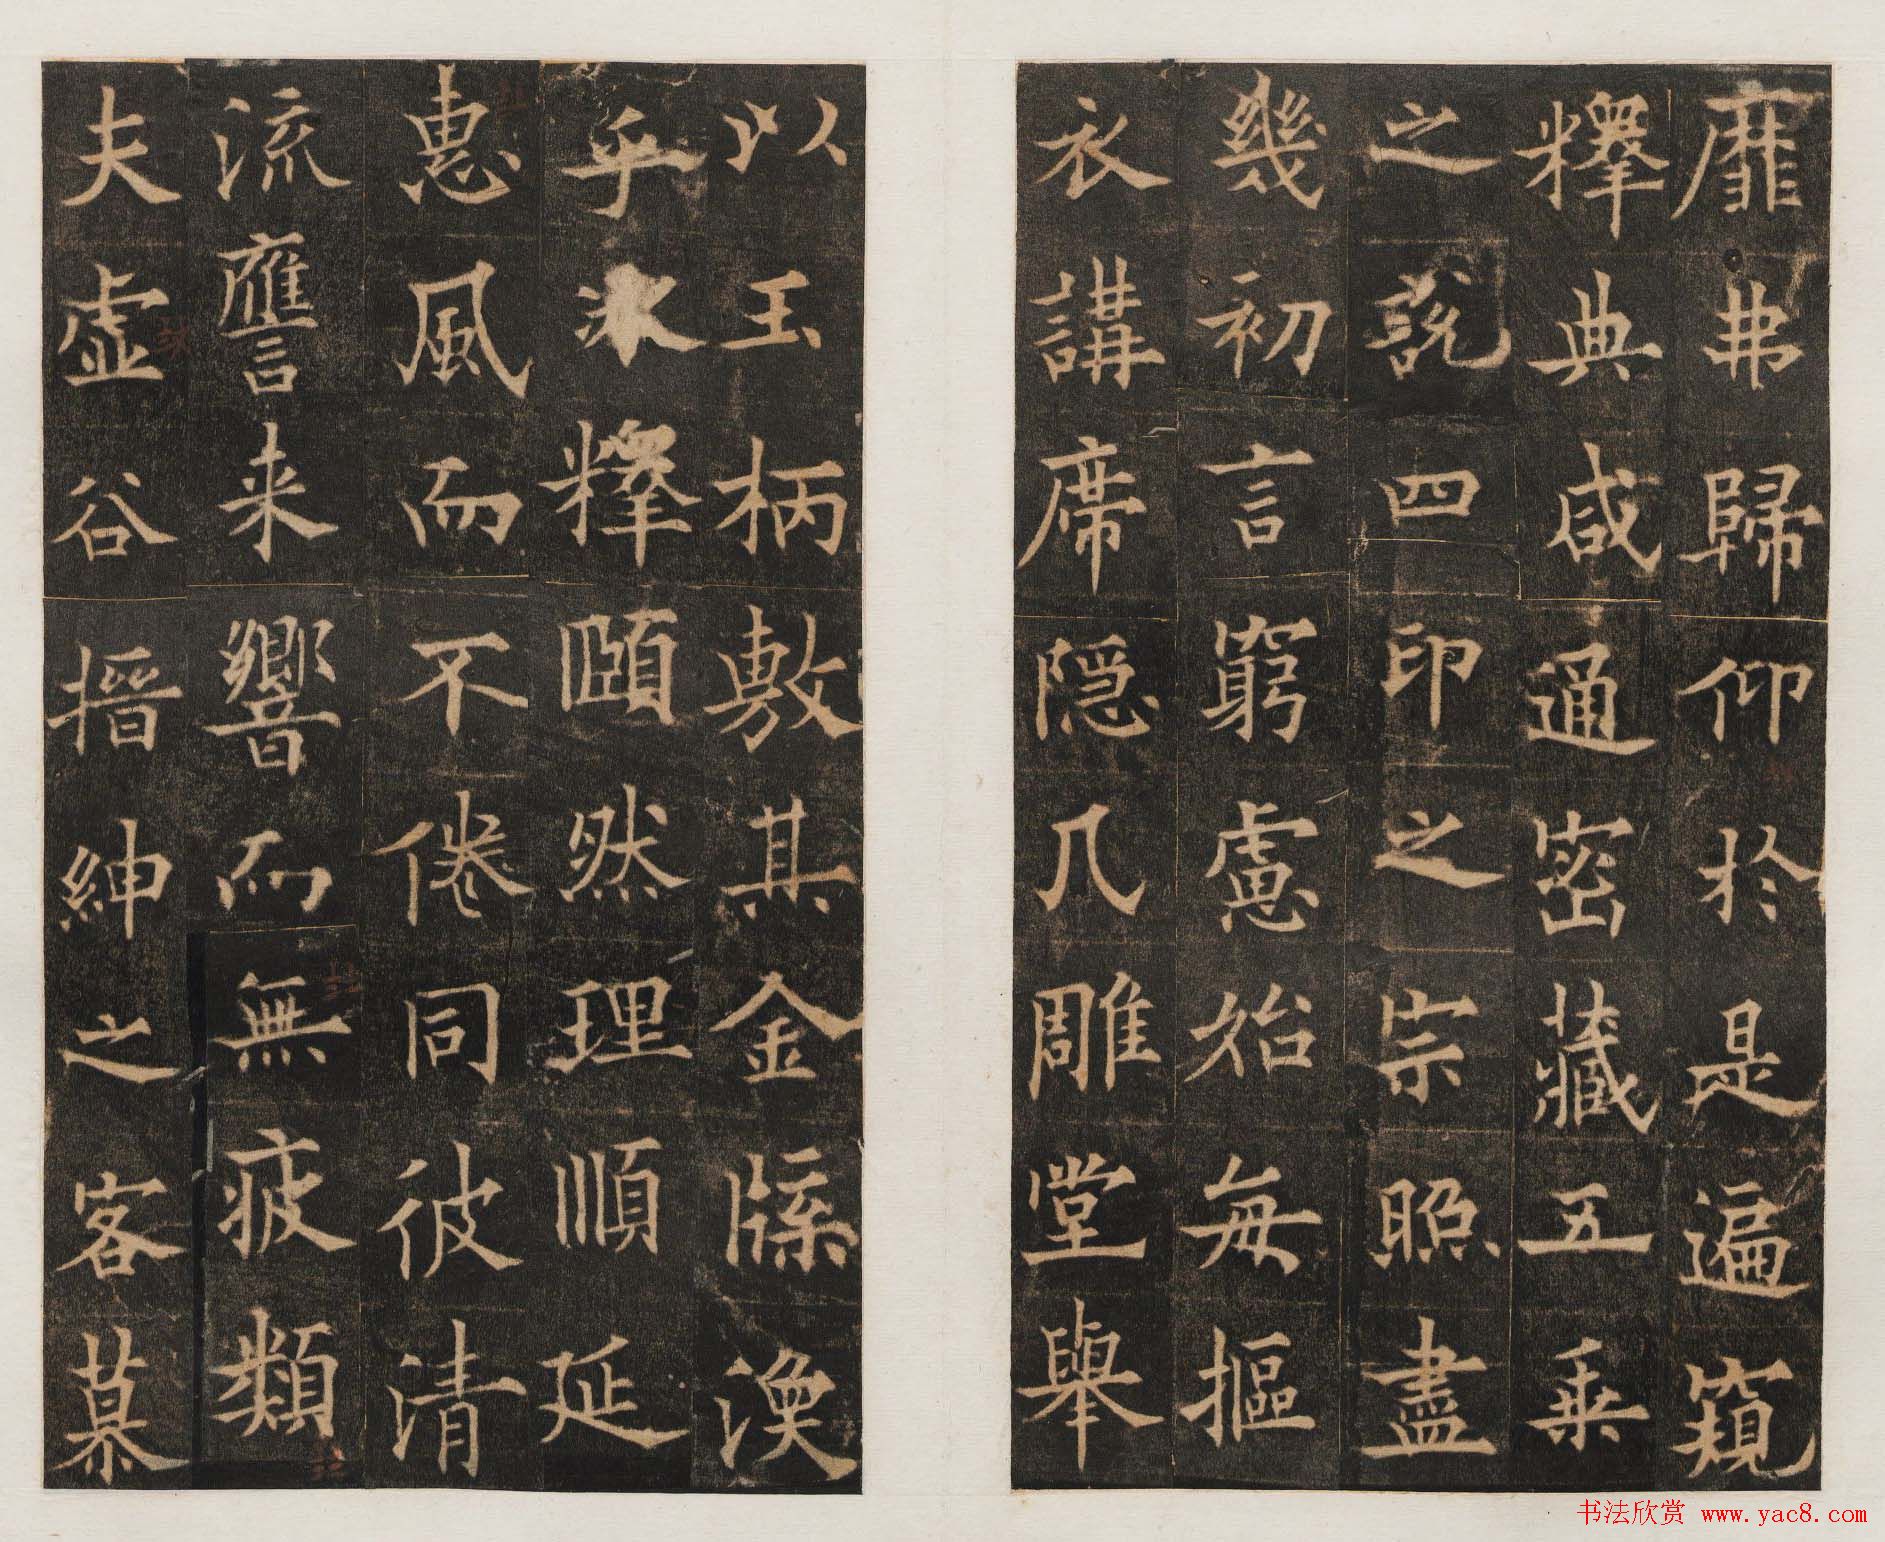 靡弗歸仰於是遍窺
釋典咸通密藏五乘
之說四印之宗照盡
幾初言窮慮始每摳
衣講席隱几雕堂舉
以玉柄敷其金牒渙
乎冰釋頤然理順延
惠風而不倦同彼清
流譍来響而無疲類
夫虛谷搢紳之客慕
书法欣赏 www.yac8.com